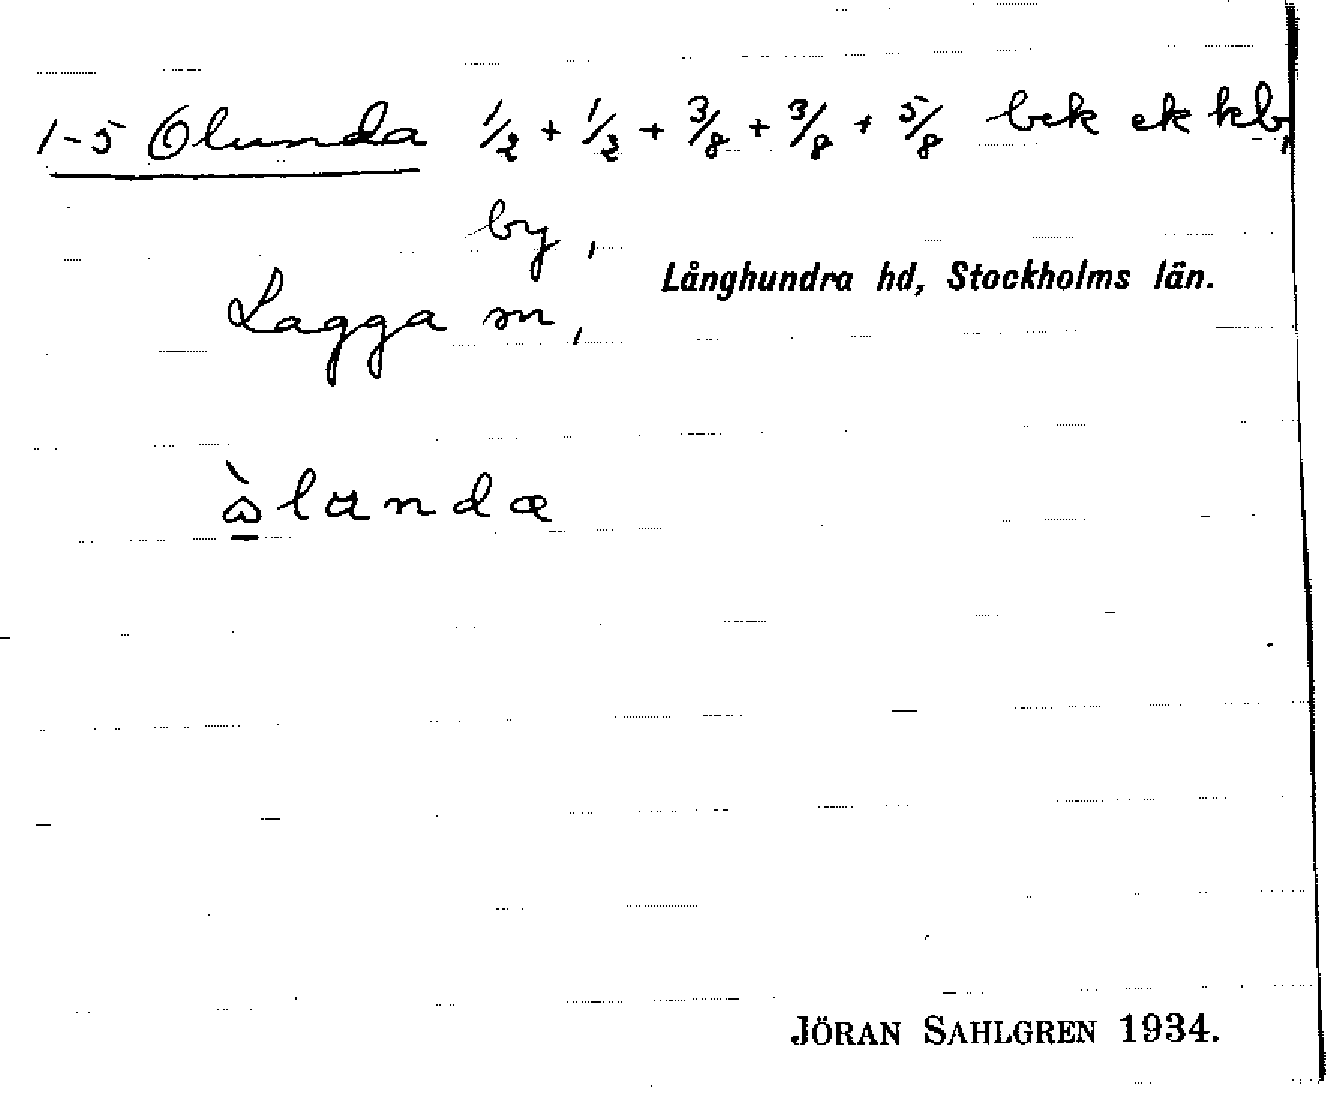 1-5 Olunda 1/2 + 1/2 + 3/8 + 3/8 + 5/8 bek ek kb,
by,
Långhundra hd, Stockholms län.
Lagga sn,
JÖRAN SAHLGREN 1934.